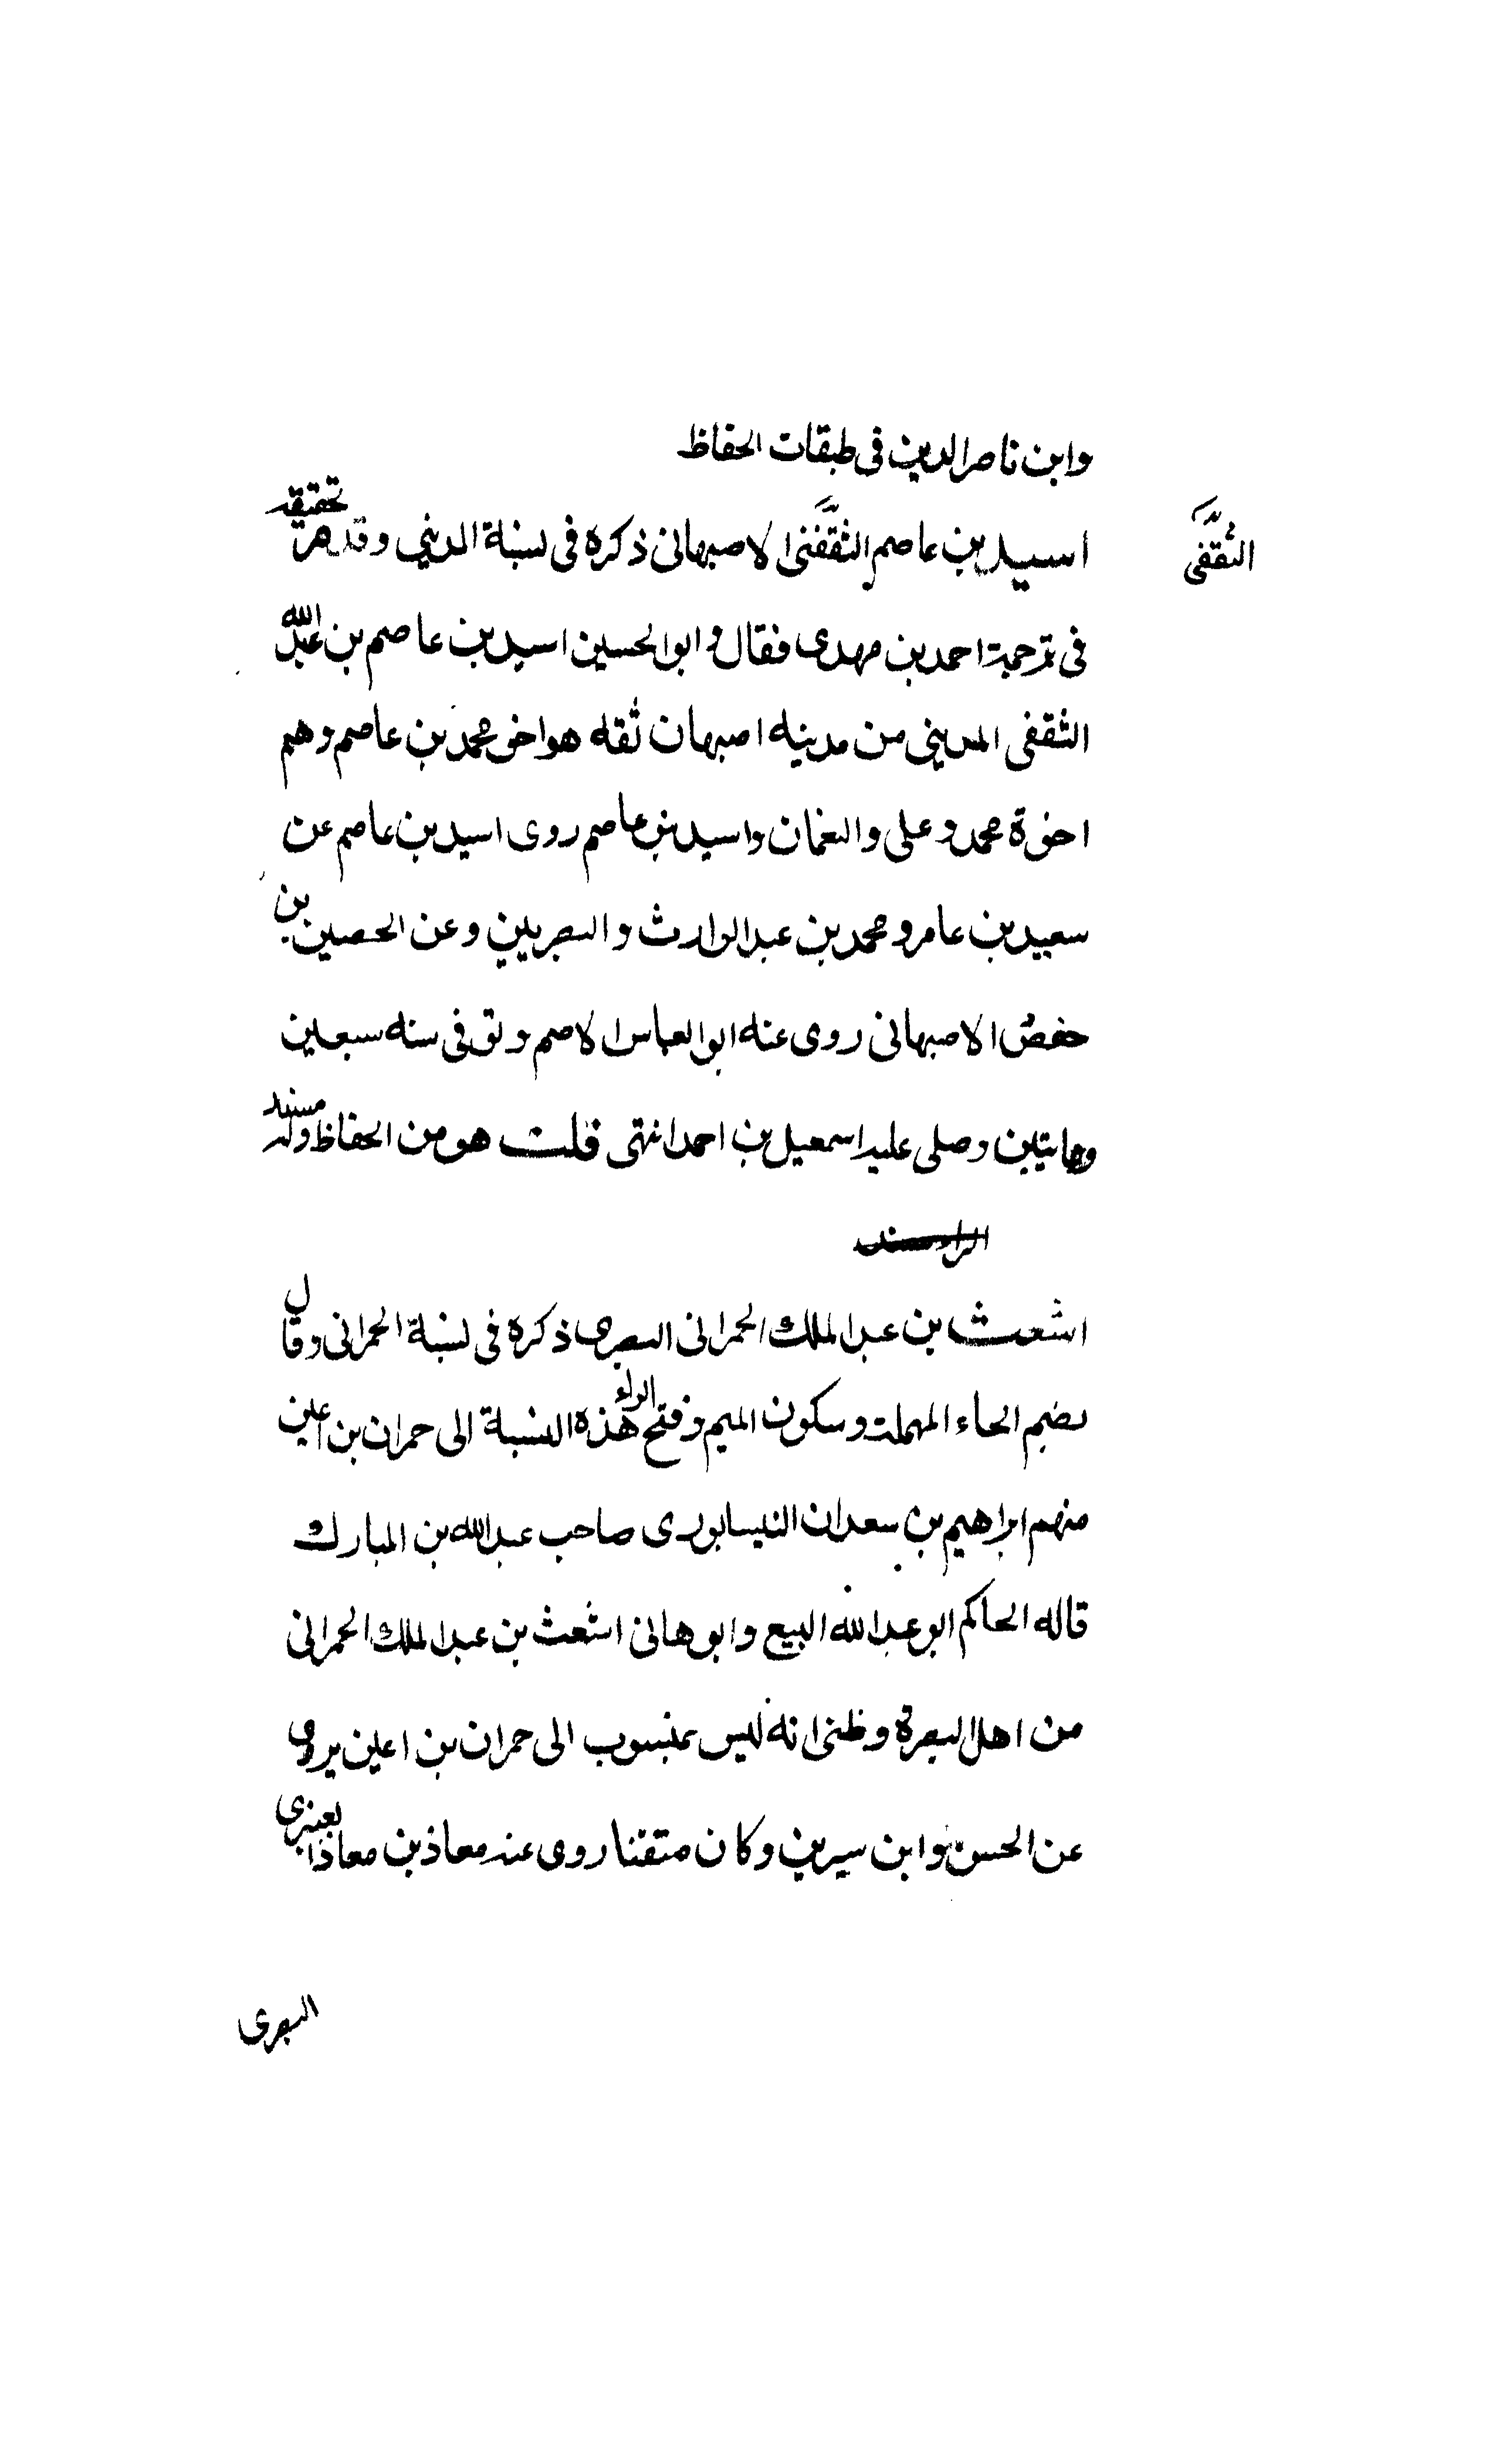 وابن ناصر الدين فى طبقات الحفاظ
اسيد بن عاصم الثقفى الاصبهانى ذكره فى نسبة المدينى وقد مر تحقيقه
الثقفى
فى ترجمة احمد بن مهدى فقال و ابو الحسين اسيد بن عاصم بن عبد الله
الثقفى المدينى من مدينه اصبهان ثقه هو اخو محمد بن عاصم وهم
اخوة محمد و على والنعمان واسيد بنو عاصم روى اسيد بن عاصم عن
سعيد بن عامر و محمد بن عبد الوارث و البصريين وعن الحصين بن
حفص الاصبهانى روى عنه ابو العباس الاصم وتوفى سنه سبعين
ومايتين وصلى عليه اسمعيل بن احمد انتهى قلت هو من الحفاظ وله مسند
اشعث بن عبد الملك الحمرانى البصرى ذكره فى نسبة الحمرانى وقال
بضم الحاء المهملة وسكون الميم وفتح الراء هذه النسبة الى حمران بن اعين
منهم ابراهيم بن سعدان النيسابورى صاحب عبد الله بن المبارك
قاله الحاكم ابو عبد الله البيع وابو هانى اشعث بن عبد الملك الحمرانى
من اهل البصرة وظنى انه ليس بمنسوب الى حمران بن اعين يروى
عن الحسن وابن سيرين وكان متقنا روى عنه معاذ بن معاذ العنبرى
البصرى